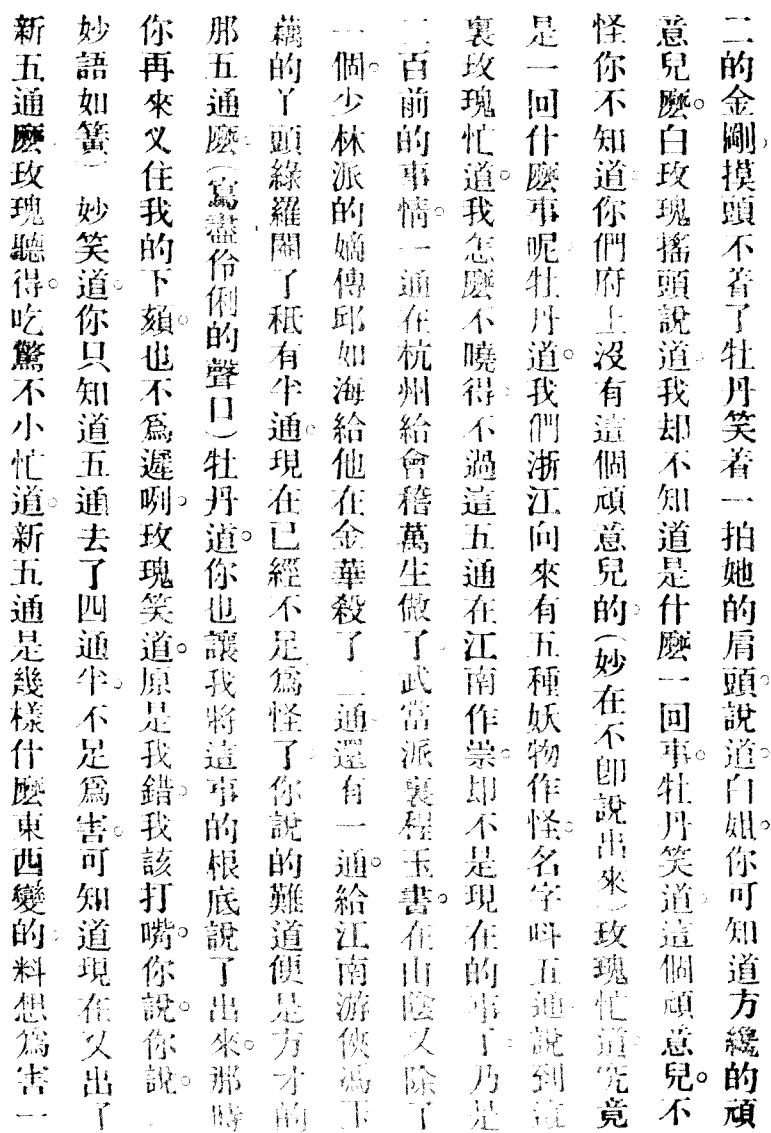 二的金剛摸頭不着了牡丹笑着一拍她的肩頭說道。白姐。你可知道方纔的頑
意兒麽。白玫瑰搖頭說道。我却不知道是什麽一回事。牡丹笑道。這個頑意兒。不
怪你不知道。你們府上沒有這個頑意兒的。(妙在不卽說出來)玫瑰忙道。究竟
是一回什麽事呢。牡丹道。我們浙江向來有五種妖物作怪。名字呌五通。說到這
裏。玫瑰忙道。我怎麽不曉得。不過這五通在江南作祟。却不是現在的事了。乃是
二百前的事情。一通在杭州給會稽萬生做了。武當派裏程玉書。在山陰又除了
一個。少林派的嫡傳邱如海給他在金華殺了二通。還有一通。給江南游俠馮玉
藕的丫頭綠羅閹了。秪有半通。現在已經不足爲怪了。你說的難道便是方才的
那五通麽。(寫盡伶俐的聲口)牡丹道。你也讓我將這事的根底說了出來。那時
你再來叉住我的下頦。也不爲遲咧。玫瑰笑道。原是我錯。我該打嘴。你說。你說。
妙語如簧)妙笑道。你只知道五通去了四通半。不足爲害。可知道現在又出了
新五通麽。玫瑰聽得。吃驚不小。忙道。新五通是幾樣什麽東西變的。料想爲害一